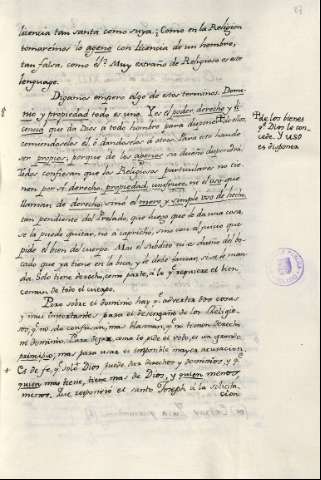 licencia tan santa como suya. ¿Como en la Religion
tomaremos lo ageno con licencia de un hombre,
tan falsa, como él? Muy extraño de Religioso es este
lenguage.
Digamos empero algo de estos terminos. Domi-
nio y propiedad todo es uno. Y es el poder, derecho y li-
cencia que da Dios à todo hombre para disponer
comiendoselos él, ò dandoselos à otros. Para esto han de
ser propios; porque de los agenos su dueño dispondrá.
Todos confiesan que los Religiosos particulares no tie-
nen por sí derecho, propiedad, usufruto, ni el uso que
llaman de derecho; sino el mero y simple uso de hecho,
tan pendiente del Prelado, que luego que le da una cosa,
se la puede quitar, no à capricho, sino con el juicio que
pide el bien del cuerpo. Mas el subdito no es dueño del bo-
cado que ya tiene en la boca, y le debe
dia. Solo tiene derecho, como parte, à lo q requiere el bien
comun de todo el cuerpo.
Pero sobre el dominio hay q advertir dos cosas
y mui importantes para el desengaño de los Religio-
sos, q no se confiesan, mas blasonan, q no tienen derecho
ni dominio. Para dejar, como lo pide el voto, es un grande
principio; mas para usar es imposible mayor acusacion.
Es de fe, q solo Dios puede dar derechos y dominios, y q
quien mas tiene, tiene mas de Dios, y quien menos
menos. Que respondió el santo Joseph à la solicita-
cion
de los bienes
q Dios le con-
cede. Y uso
es disponer